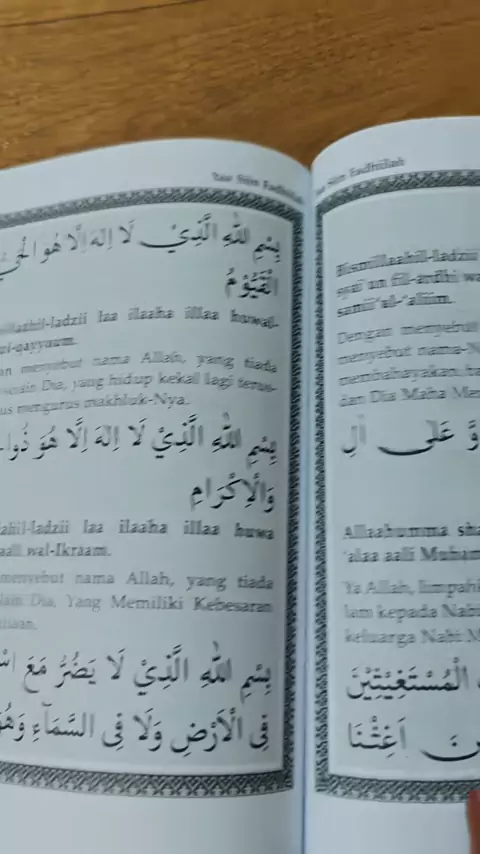 Yaa Siin Fadhilah
بِسْمِ اللّٰهِ الَّذِيْ لَا اِلٰهَ اِلَّا هُوَ الْحَيُّ
الْقَيُّوْمُ
laa ilaaha illaa huwal-
ul-qayyuum.
menyebut nama Allah, yang tiada
selain Dia, yang hidup kekal lagi terus-
mengurus makhluk-Nya.
بِسْمِ اللّٰهِ الَّذِيْ لَا اِلٰهَ اِلَّا هُوَ
وَالْاِكْرَامِ
ahil-ladzii laa ilaaha illaa huwa
wal-Ikraam.
menyebut nama Allah, yang tiada
lain Dia, Yang Memiliki Kebesaran
بِسْمِ اللّٰهِ الَّذِيْ لَا يَضُرُّ مَعَ
فِى الْاَرْضِ وَلَا فِى السَّمَآءِ وَهُوَ
Yaa Siin Fadhilah
Bismillaahil-ladzii
syai'un fil-ardhi wa
samii'ul-'aliim.
Dengan menyebut
menyebut nama-N
membahayakan ba
dan Dia Maha Me
وَّ عَلٰى اٰلِ
Allaahumma sha
'alaa aali Muham
Ya Allah, limpah
lam kepada Nabi
keluarga Nabi M
الْمُسْتَغِيْثِيْنَ
اَغِثْنَا